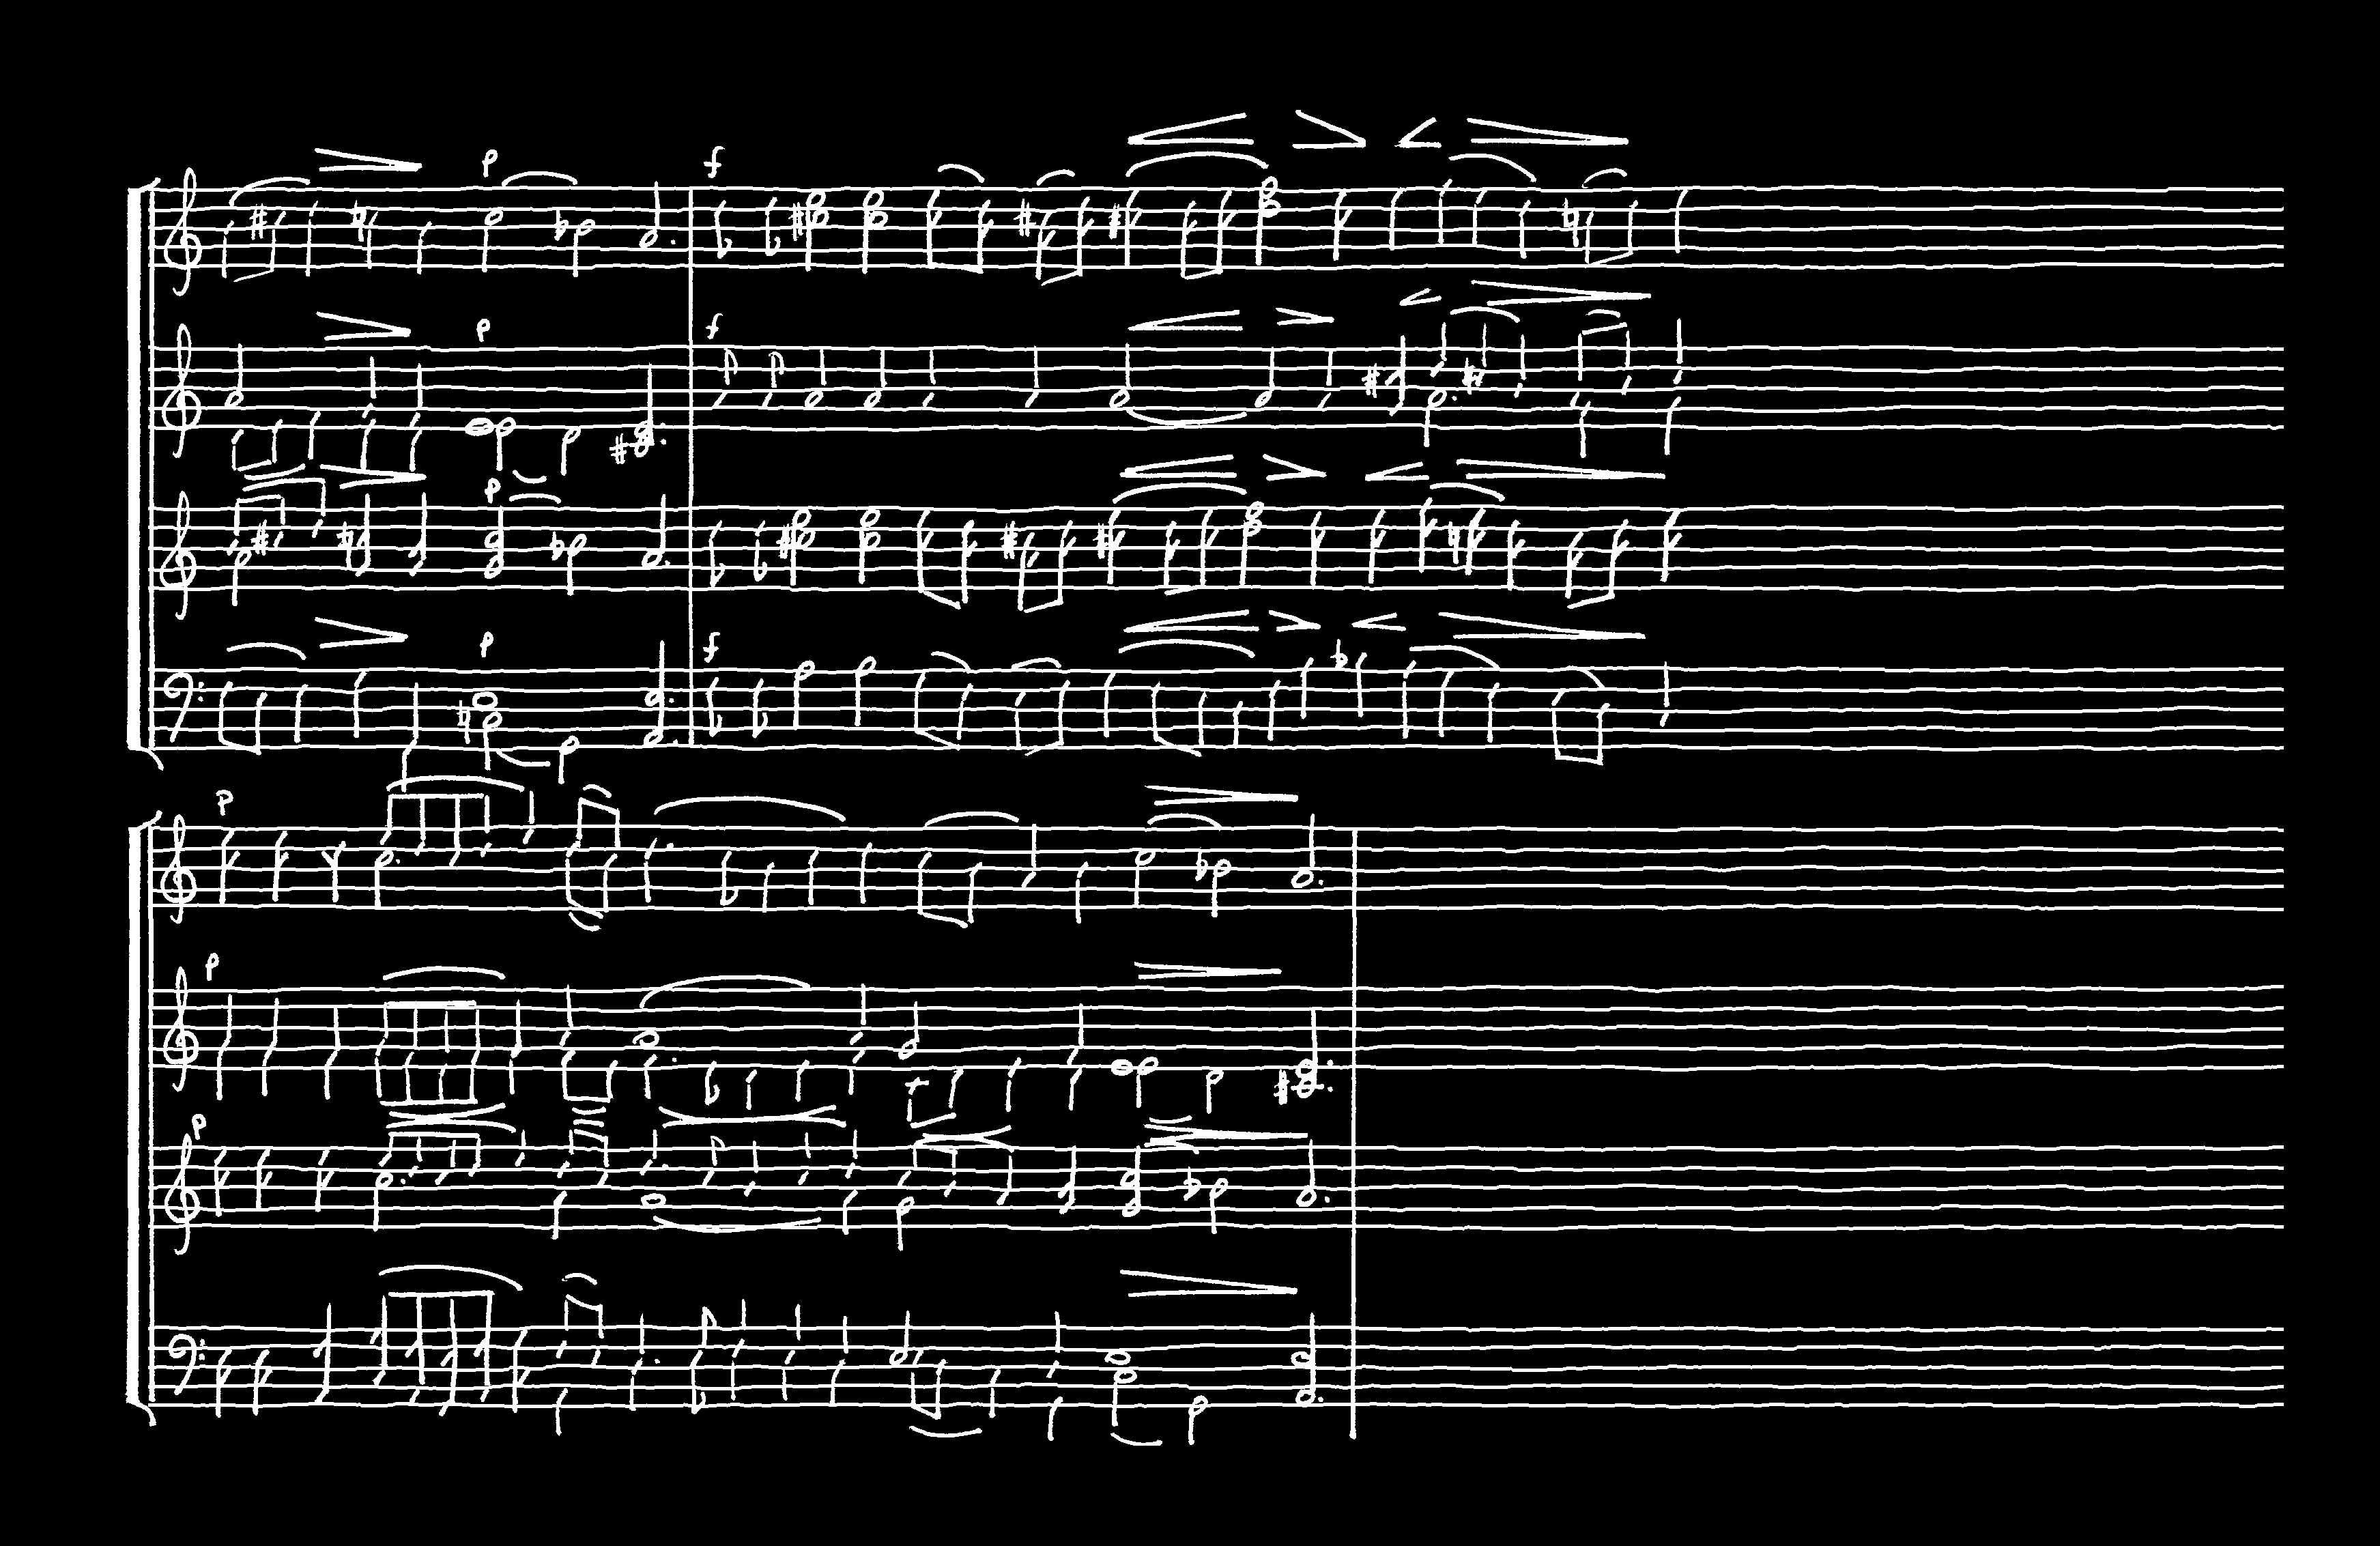 p
f
p
f
p
p
f
p
p
p